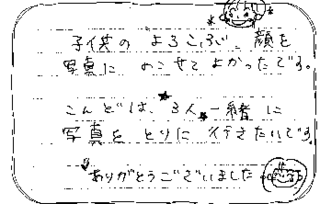 子供の よろこぶ、顔を
写真に のこせて よかったです。
こんどは、3人 一緒に
写真を とりに 行きたいです。
ありがとうございました